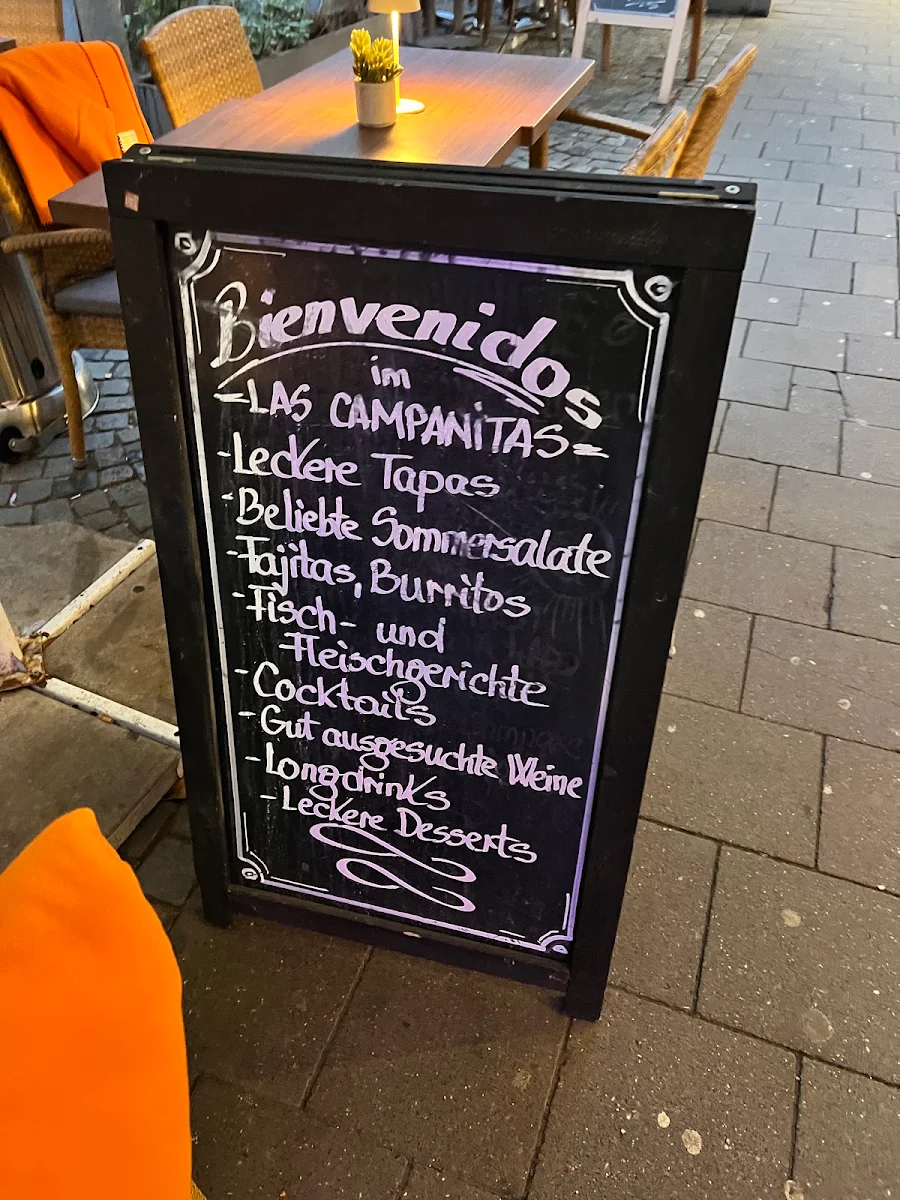 Bienvenidos
im
-LAS CAMPANiTAS-
-Leckere Tapas
-Beliebte Sommersalate
-Fajitas, Burritos
-Fisch- und
Fleischgerichte
-Cocktails
-Gut ausgesuchte Weine
-Longdrinks
-Leckere Desserts